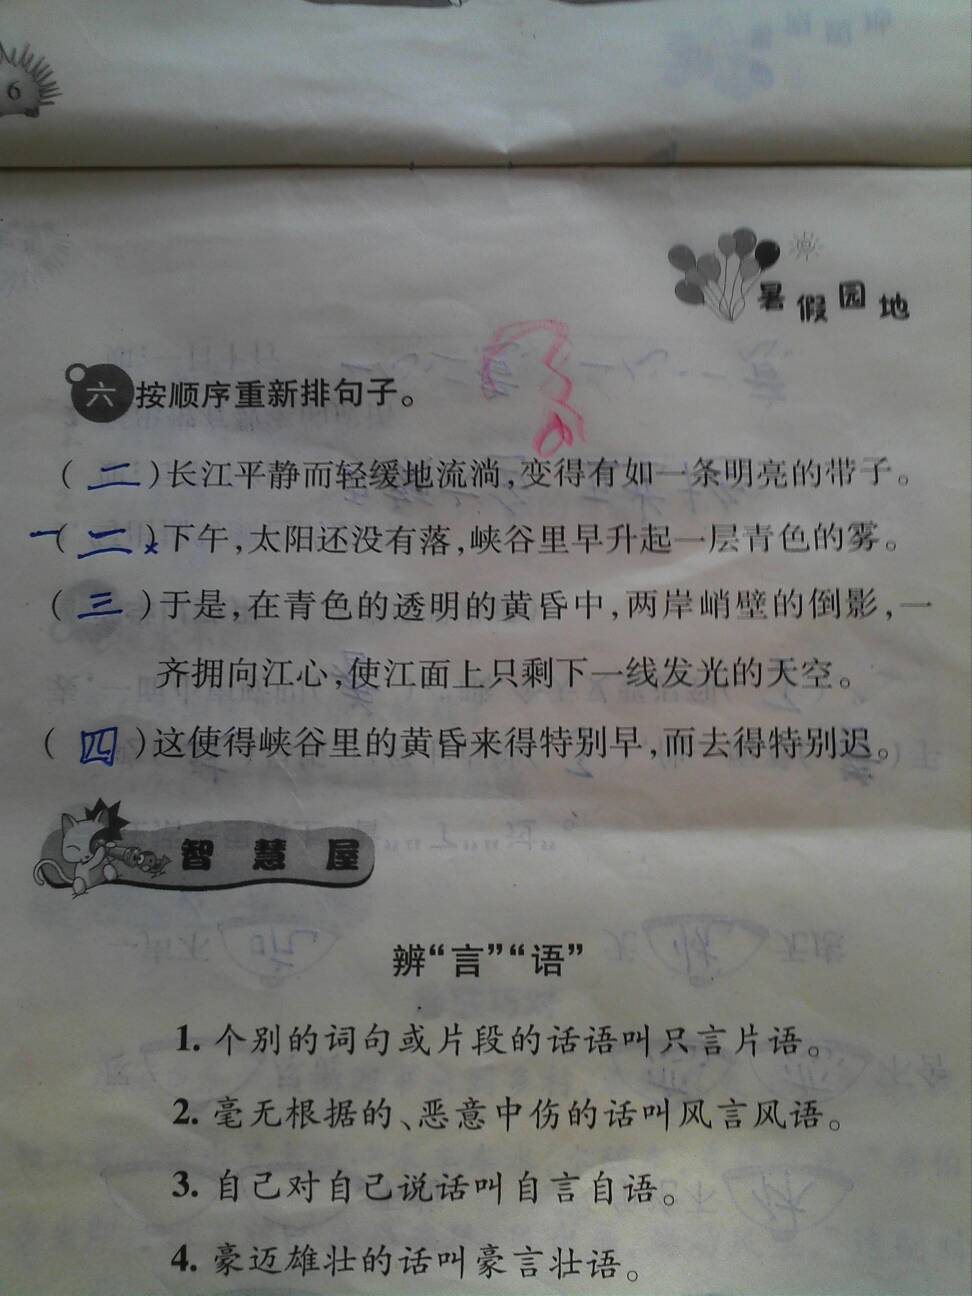 6
暑假园地
六 按顺序重新排句子。
(二)长江平静而轻缓地流淌,变得有如一条明亮的带子。
一(二)×下午,太阳还没有落,峡谷里早升起一层青色的雾。
(三)于是,在青色的透明的黄昏中,两岸峭壁的倒影,一
齐拥向江心,使江面上只剩下一线发光的天空。
(四)这使得峡谷里的黄昏来得特别早,而去得特别迟。
智慧屋
辨“言”“语”
1. 个别的词句或片段的话语叫只言片语。
2. 毫无根据的、恶意中伤的话叫风言风语。
3. 自己对自己说话叫自言自语。
4. 豪迈雄壮的话叫豪言壮语。